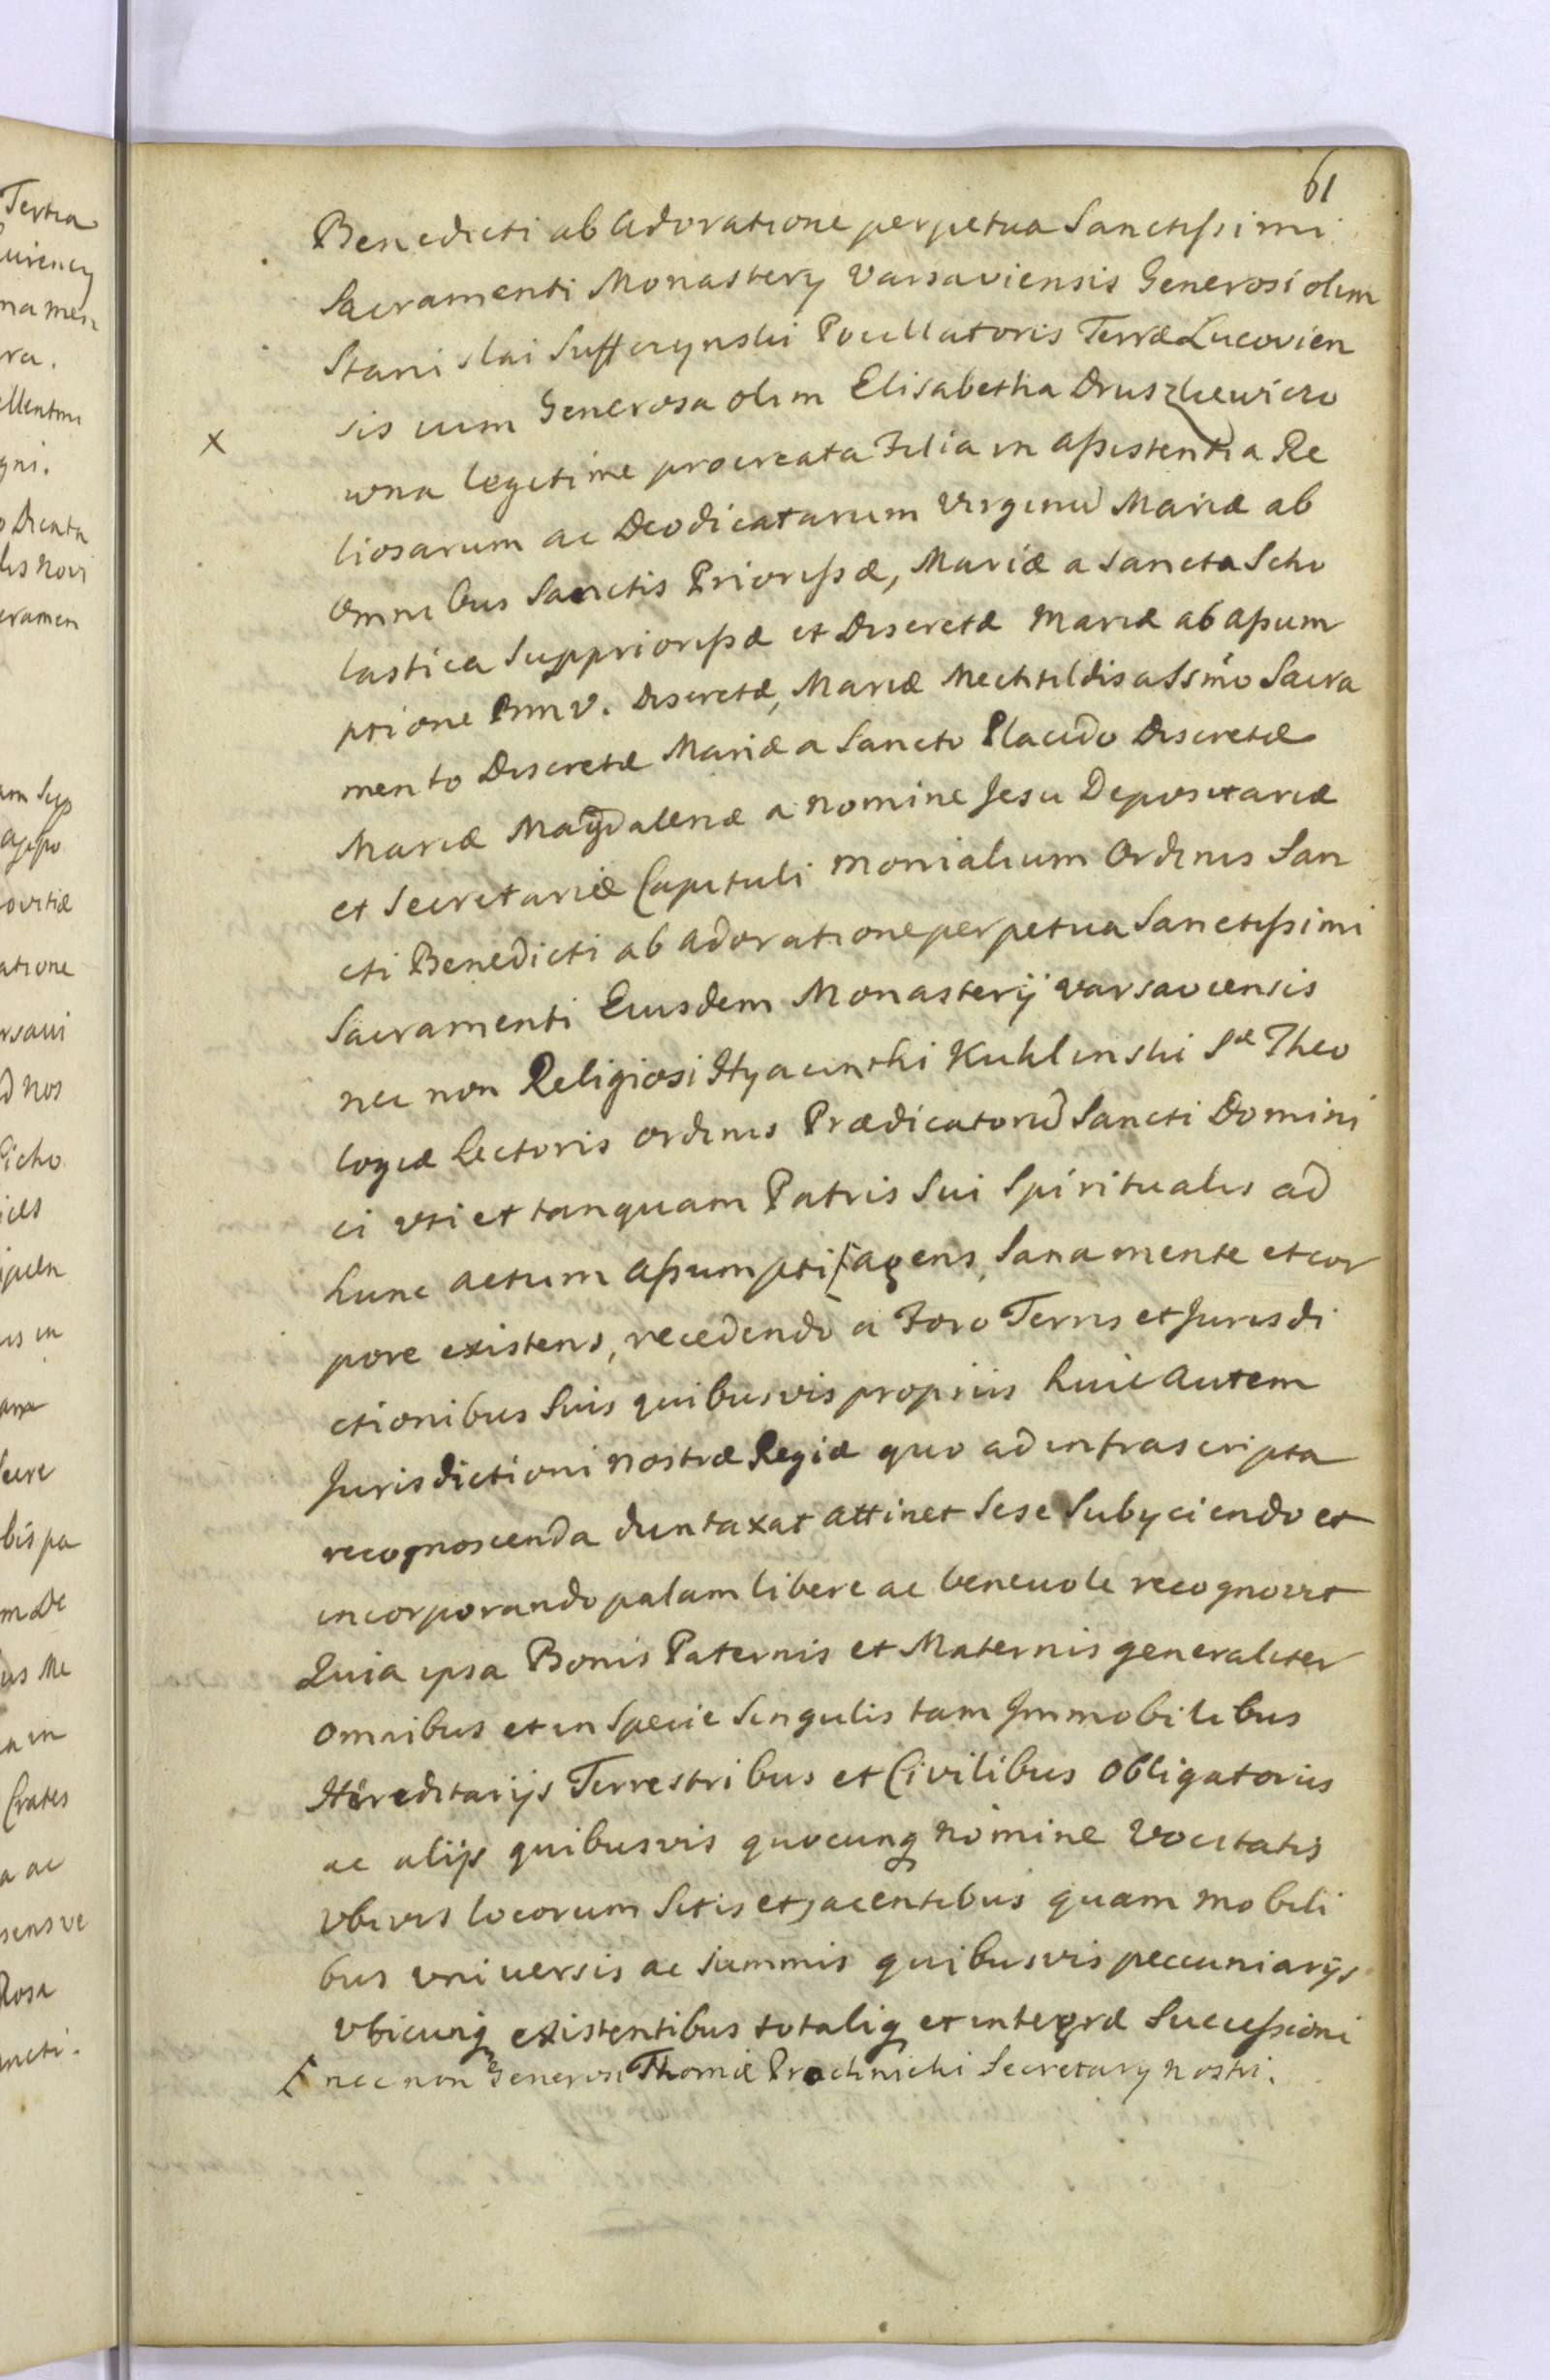 61
Benedicti ab Adoratione perpetua Sanctissimi
Sacramenti Monastery Varsaviensis Generosi olim
Stanislai Suffczynski Pocillatoris Terræ Lucovien
sis cum Generosa olim Elisabetha Druszkewiczo
x wna legitime procreata Filia in assistentia Re
liosarum ac Deodicatarum Virginũ Mariæ ab
Omnibus Sanctis Priorissæ, Mariæ a Sancta Scho
lastica Suppriorissæ et Discretæ Mariæ ab assum
ptione BMV. Discretæ, Mariæ Mechtildis a SSmo Sacra
mento Discretæ Mariæ a Sancto Placido Discretæ
Mariæ Magdalenæ a Nomine Jesu Depositariæ
et Secretariæ Capituli Monialium Ordinis San
cti Benedicti ab adoratione perpetua Sanctissimi
Sacramenti Eiusdem Monasterij Varsaviensis
nec non Religiosi Hyacinthi Kuklinski Sæ Theo
logiæ Lectoris Ordinis Prædicatorũ Sancti Domini
ci vti et tanquam Patris Sui Spiritualis ad
hunc actum assumpti [agens, Sana mente et cor
pore existens, recedendo a Foro Terris et Jurisdi
ctionibus Suis quibusvis proprijs huic autem
Jurisdictioni nostræ Regiæ quo ad infrascripta
recognoscenda duntaxat attinet Sese Subyciendo et
incorporando palam libere ac beneuole recognovit
Quia ipsa Bonis Paternis et Maternis generaliter
omnibus et in Specie Singulis tam Immobilibus
Hæreditarijs Terrestribus et Civilibus Obligatorijs
ac alijs quibusvis quocunq nomine Vocitatis
vbivis locorum Sitis et jacentibus quam mobili
bus vniuersis ac Summis quibusvis peccuniarijs
vbicunq existentibus totaliq et integræ Successioni
[ nec non Generosi Thomæ Prochnicki Secretary nostri.